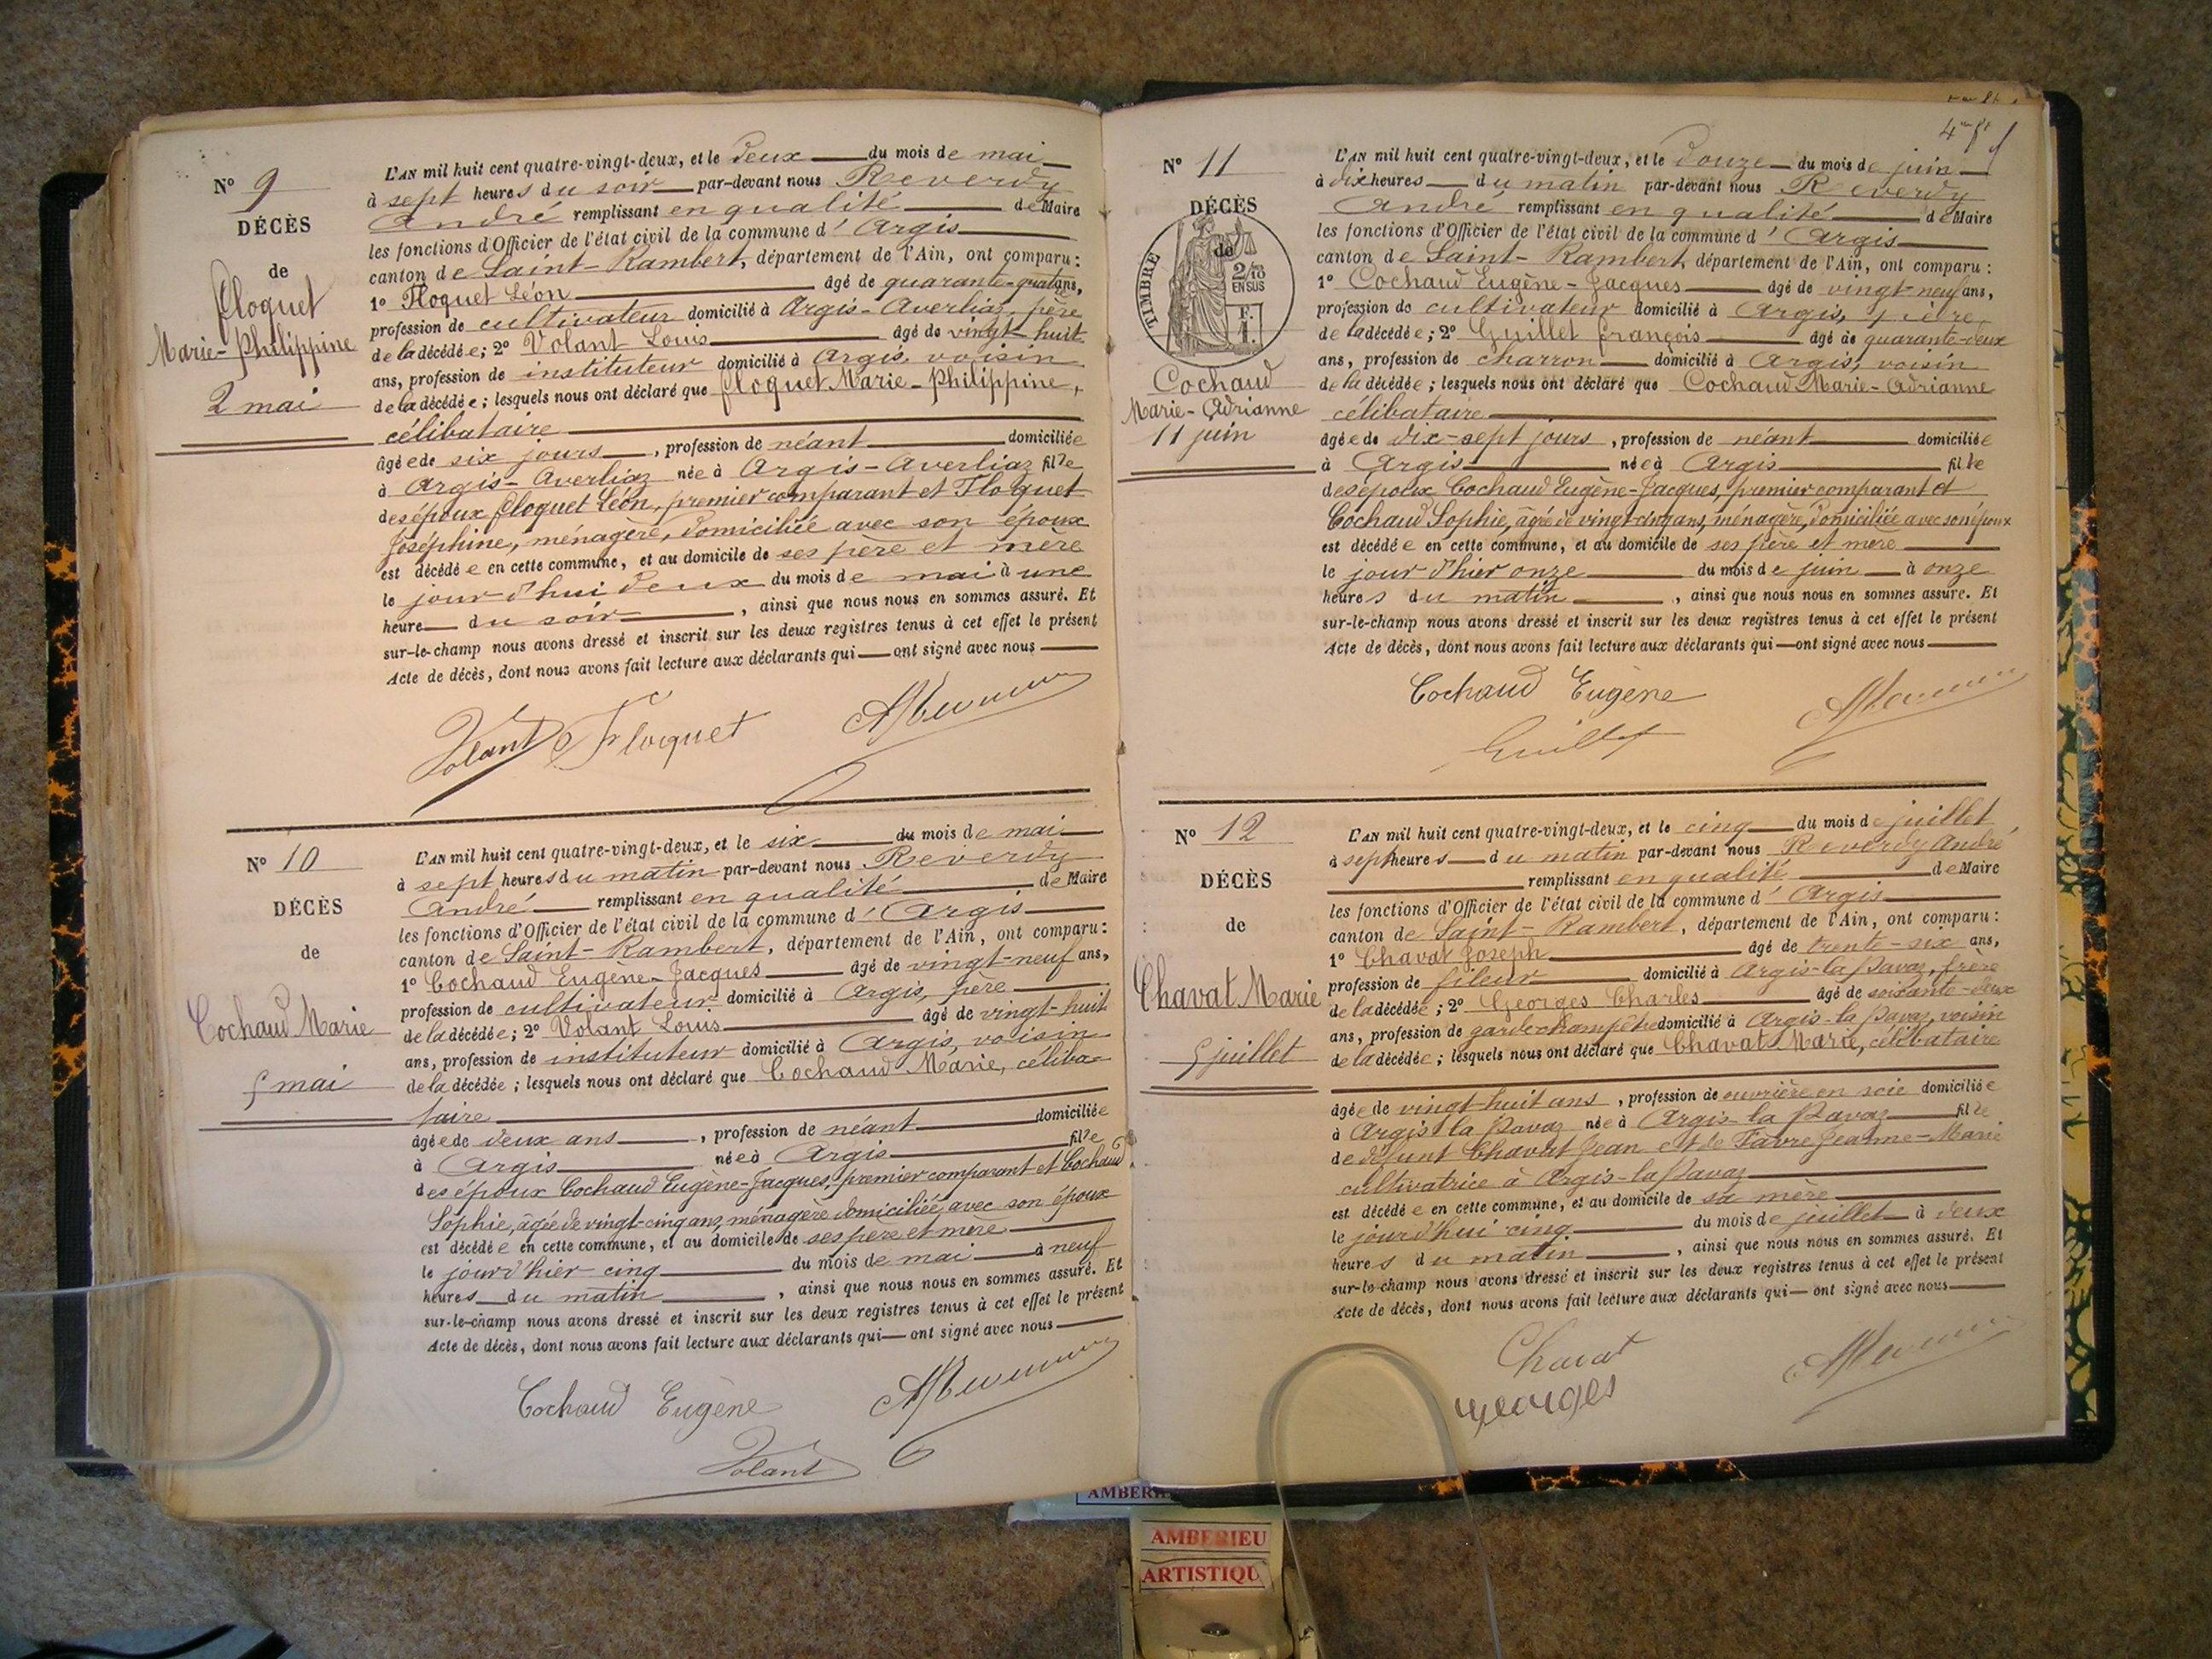 N° 9
DÉCÈS
de
Floquet
Marie-Philippine
2 mai
L'AN mil huit cent quatre-vingt-deux, et le deux du mois de mai
à sept heures du soir par-devant nous Reverdy
André remplissant en qualité de Maire
les fonctions d'Officier de l'état civil de la commune d'Argis
canton de Saint-Rambert, département de l'Ain, ont comparu:
1° Floquet Léon âgé de quarante-quatre ans,
profession de cultivateur domicilié à Argis-Averliaz, père
de la décédée; 2° Volant Louis âgé de vingt-huit
ans, profession de instituteur domicilié à Argis, voisin
de la décédée; lesquels nous ont déclaré que Floquet Marie-Philippine,
célibataire
âgée de six jours, profession de néant domiciliée
à Argis-Averliaz née à Argis-Averliaz fille
des époux Floquet Léon, premier comparant et Floquet
Joséphine, ménagère, domiciliée avec son époux
est décédée en cette commune, et au domicile de ses père et mère
le jour d'hui deux du mois de mai à une
heure du soir, ainsi que nous nous en sommes assuré. Et
sur-le-champ nous avons dressé et inscrit sur les deux registres tenus à cet effet le présent
Acte de décès, dont nous avons fait lecture aux déclarants qui ont signé avec nous
Volant Floquet
N° 10
DÉCÈS
de
Cochaud Marie
5 mai
L'AN mil huit cent quatre-vingt-deux, et le six du mois de mai
à sept heures du matin par-devant nous Reverdy
André remplissant en qualité de Maire
les fonctions d'Officier de l'état civil de la commune d'Argis
canton de Saint-Rambert, département de l'Ain, ont comparu:
1° Cochaud Eugène-Jacques âgé de vingt-neuf ans,
profession de cultivateur domicilié à Argis, père
de la décédée; 2° Volant Louis âgé de vingt-huit
ans, profession de instituteur domicilié à Argis, voisin
de la décédée; lesquels nous ont déclaré que Cochaud Marie, céliba-
taire
âgée de deux ans, profession de néant domiciliée
à Argis née à Argis fille
des époux Cochaud Eugène-Jacques, premier comparant et Cochaud
Sophie, âgée de vingt-cinq ans, ménagère domiciliée avec son époux
est décédée en cette commune, et au domicile de ses père et mère
le jour d'hier cinq du mois de mai à neuf
heures du matin, ainsi que nous nous en sommes assuré. Et
sur-le-champ nous avons dressé et inscrit sur les deux registres tenus à cet effet le présent
Acte de décès, dont nous avons fait lecture aux déclarants qui ont signé avec nous
Cochaud Eugène
Volant
N° 11
DÉCÈS
de
TIMBRE
2/10
EN SUS
F.
1.
Cochaud
Marie-Adrianne
11 juin
L'AN mil huit cent quatre-vingt-deux, et le douze du mois de juin
à dix heures du matin par-devant nous Reverdy
André remplissant en qualité de Maire
les fonctions d'Officier de l'état civil de la commune d'Argis
canton de Saint-Rambert, département de l'Ain, ont comparu:
1° Cochaud Eugène-Jacques âgé de vingt-neuf ans,
profession de cultivateur domicilié à Argis, père
de la décédée; 2° Guillet François âgé de quarante-deux
ans, profession de charron domicilié à Argis, voisin
de la décédée; lesquels nous ont déclaré que Cochaud Marie-Adrianne
célibataire
âgée de dix-sept jours, profession de néant domiciliée
à Argis née à Argis fille
des époux Cochaud Eugène-Jacques, premier comparant et
Cochaud Sophie, âgée de vingt-cinq ans, ménagère, domiciliée avec son époux
est décédée en cette commune, et au domicile de ses père et mère
le jour d'hier onze du mois de juin à onze
heures du matin, ainsi que nous nous en sommes assuré. Et
sur-le-champ nous avons dressé et inscrit sur les deux registres tenus à cet effet le présent
Acte de décès, dont nous avons fait lecture aux déclarants qui ont signé avec nous
Cochaud Eugène
Guillet
N° 12
DÉCÈS
de
Chavat Marie
5 juillet
L'AN mil huit cent quatre-vingt-deux, et le cinq du mois de juillet
à sept heures du matin par-devant nous Reverdy André
remplissant en qualité de Maire
les fonctions d'Officier de l'état civil de la commune d'Argis
canton de Saint-Rambert, département de l'Ain, ont comparu:
1° Chavat Joseph âgé de trente-six ans,
profession de fileur domicilié à Argis-la Pavaz, frère
de la décédée; 2° Georges Charles âgé de soixante-deux
ans, profession de garde-champêtre domicilié à Argis-la Pavaz, voisin
de la décédée; lesquels nous ont déclaré que Chavat Marie, célibataire
âgée de vingt-huit ans, profession de ouvrière en soie domiciliée
à Argis la Pavaz née à Argis-la Pavaz fille
de défunt Chavat Jean et de Favre Jeanne-Marie
cultivatrice à Argis-la Pavaz
est décédée en cette commune, et au domicile de sa mère
le jour d'hui cinq du mois de juillet à deux
heures du matin, ainsi que nous nous en sommes assuré. Et
sur-le-champ nous avons dressé et inscrit sur les deux registres tenus à cet effet le présent
Acte de décès, dont nous avons fait lecture aux déclarants qui ont signé avec nous
Chavat
Georges
AMBERIEU
ARTISTIQU